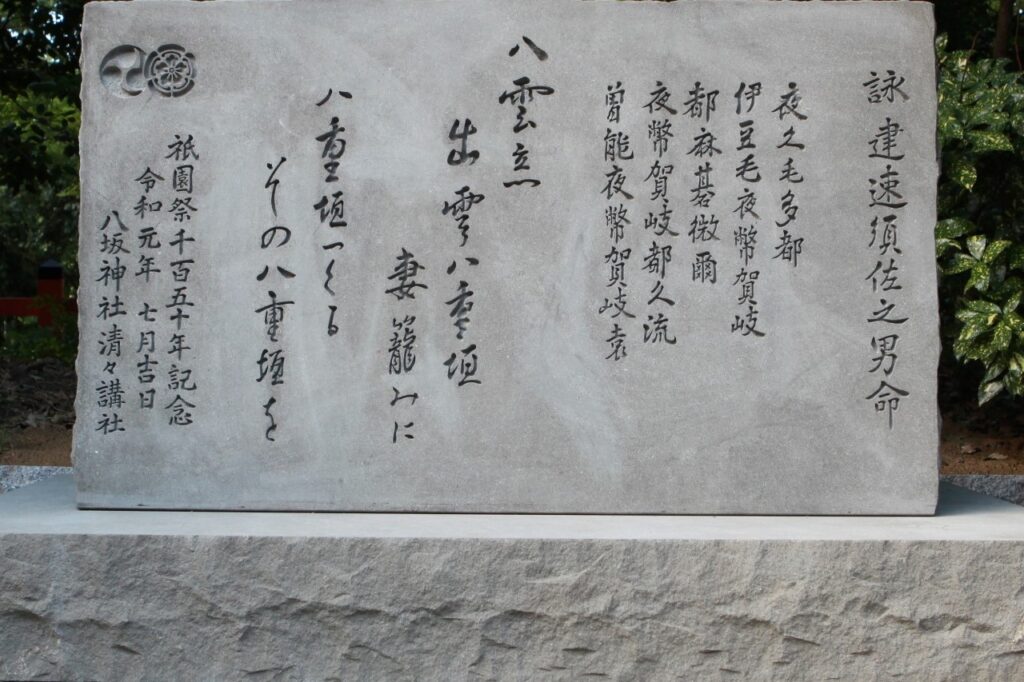 詠建速須佐之男命
夜久毛多都
伊豆毛夜幣賀岐
都麻碁微爾
夜幣賀岐都久流
曽能夜幣賀岐袁
八雲立
出雲八重垣
妻籠みに
八重垣つくる
その八重垣を
祇園祭千百五十年記念
令和元年 七月吉日
八坂神社清々講社